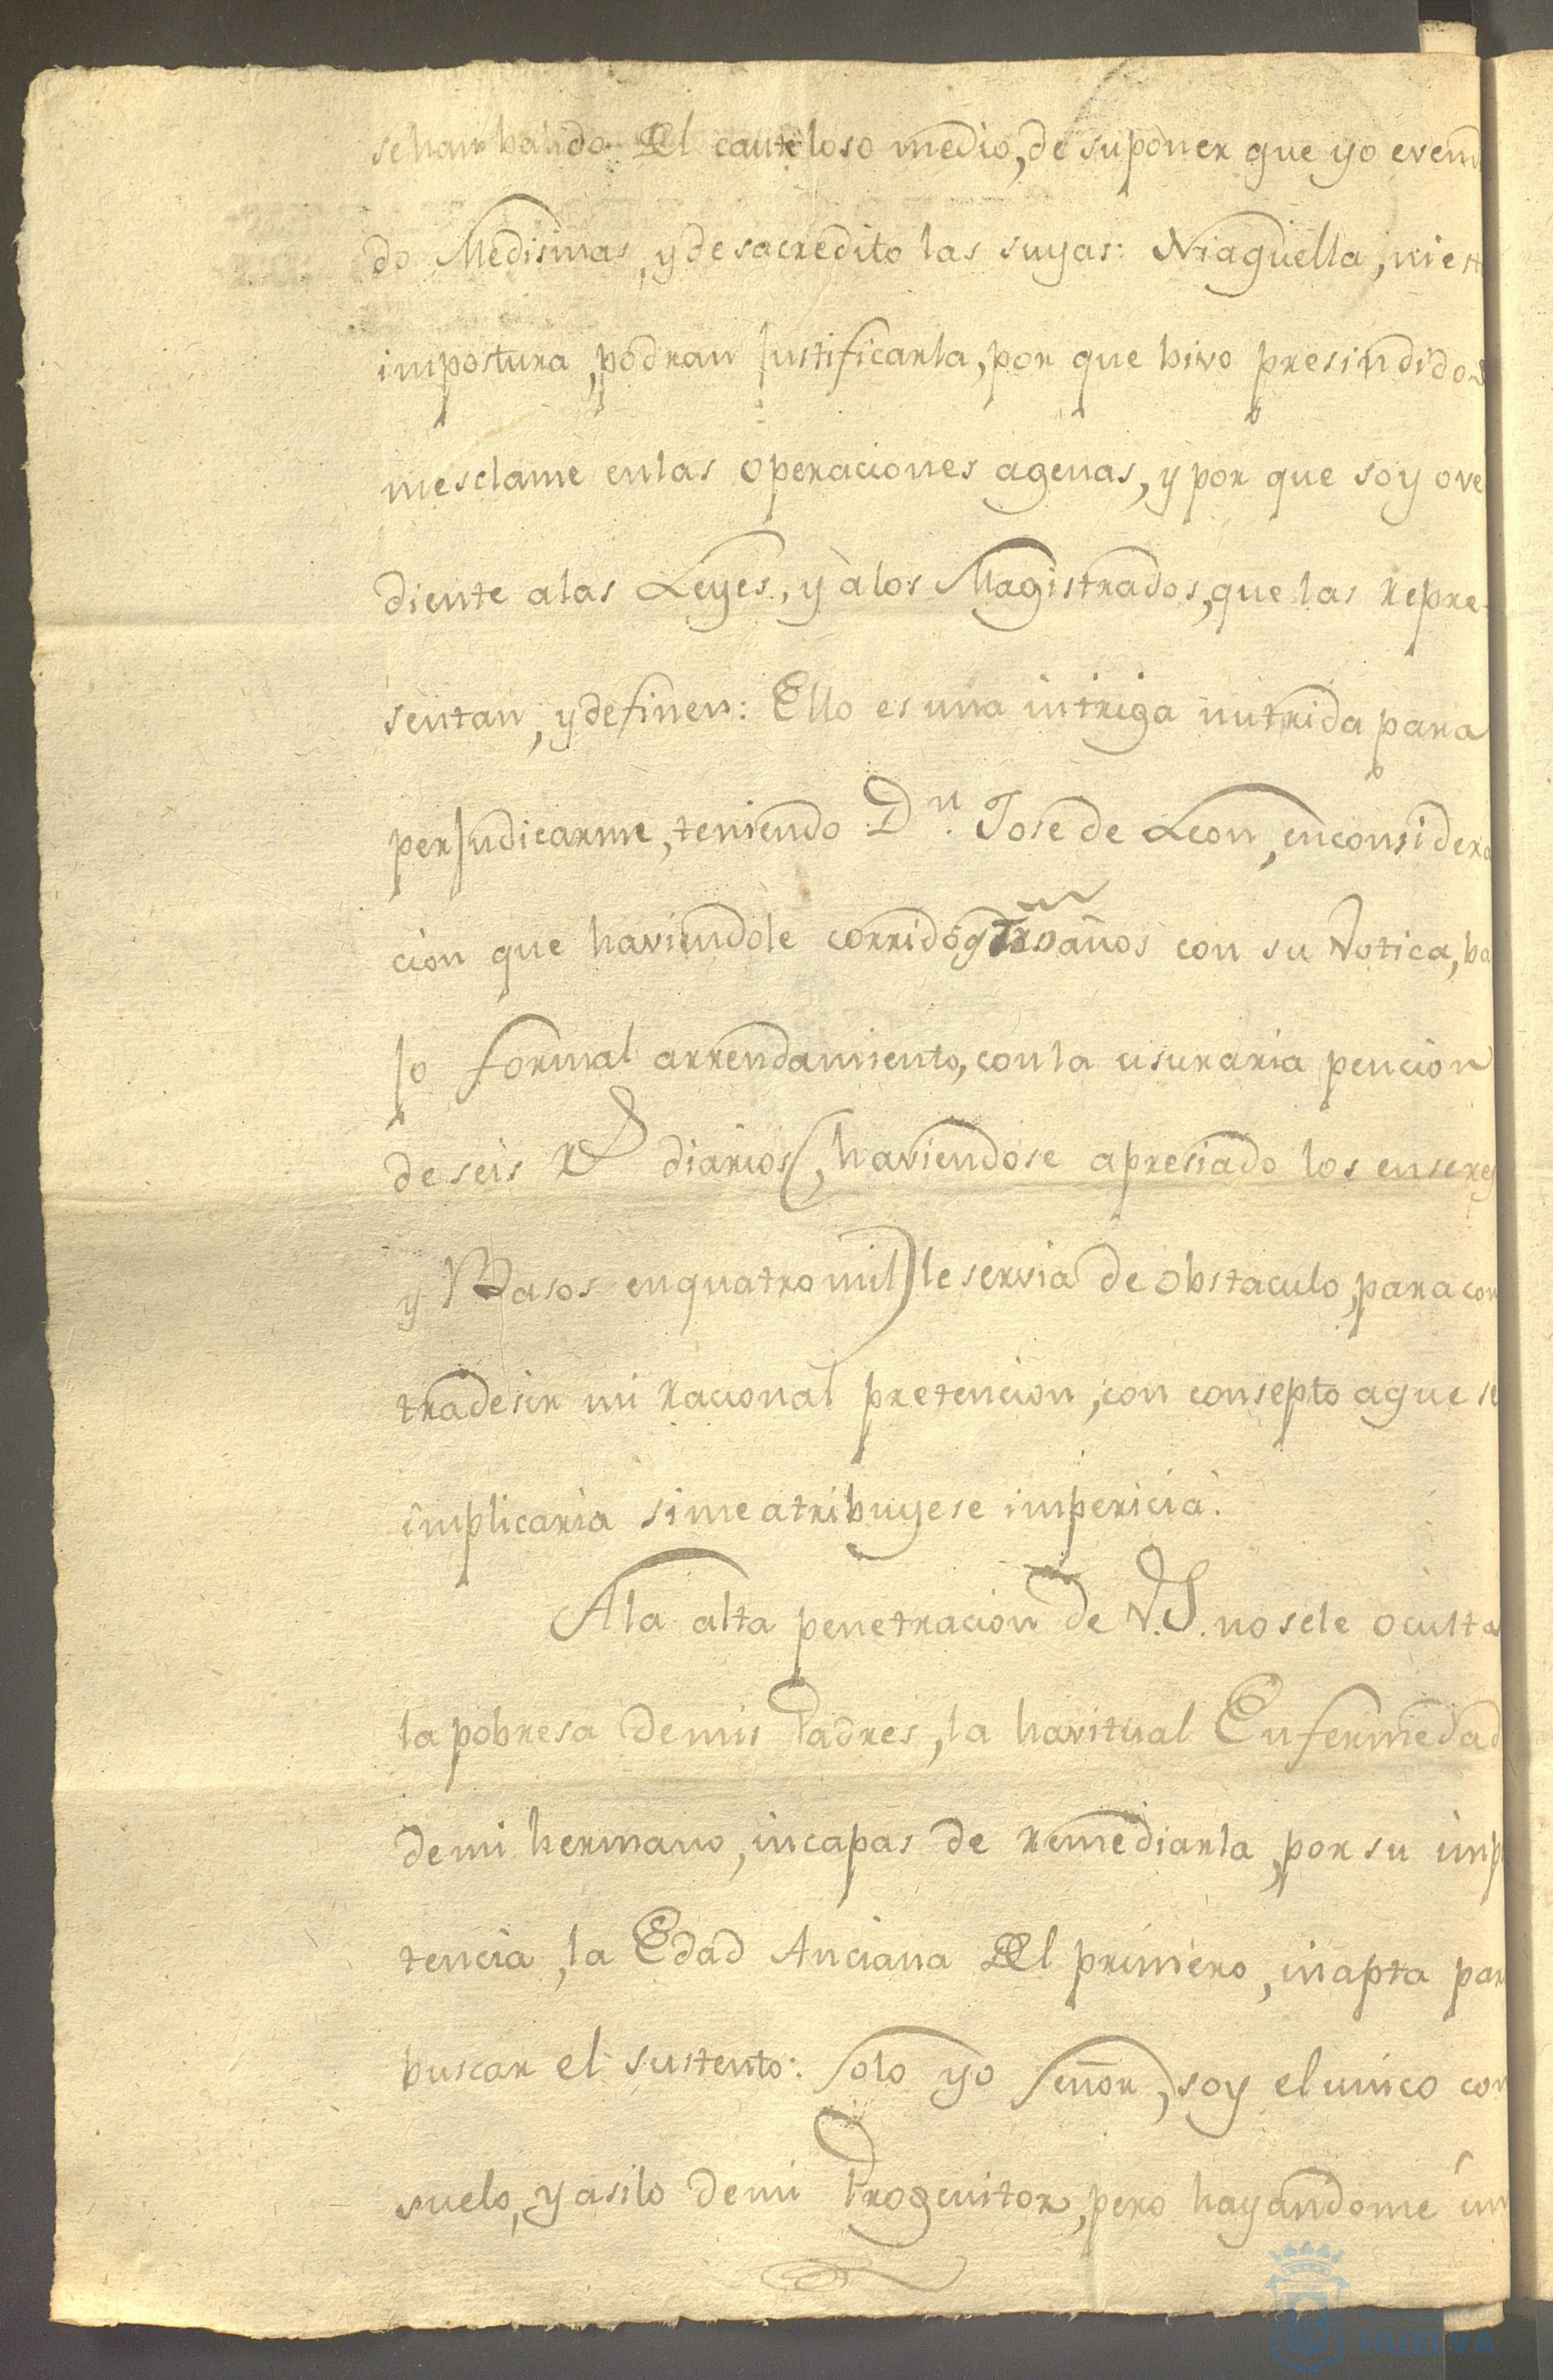 se han balido del cauteloso medio, de suponer que yo e vend
do Medisinas, y desacredito las suyas: Ni aquella, ni est
impostura, podran justificarla, por que bivo presindido d
mesclame en las operaciones agenas, y por que soy ove
diente a las Leyes, y à los Magistrados, que las repre-
sentan, y definen: Ello es una intriga nutrida para
perjudicarme, teniendo Dn. Jose de Leon, en considera
cion que haviendole corrido años con su Votica, ba
jo formal arrendamiento, con la usuraria pencion
de seis rs diarios (, haviendose apresiado los enseres
y Basos en quatro mil) le servia de obstaculo, para con
tradesir mi racional pretencion, con consepto a que se
implicaria si me atribuyese impericia.
A la alta penetracion de V.S. no se le oculta
la pobresa de mis Padres, la havitual Enfermedad
de mi hermano, incapas de remediarla, por su imp
tencia, la Edad Anciana del primero, inapta par
buscar el sustento: Solo yo Señor, soy el unico con
suelo, y asilo de mi Progenitor, pero hayandome im
HUELVA